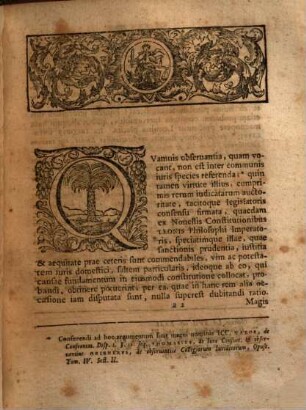 QVamuis obseruantia, quam vo-
cant, non est inter communis
iuris species referenda:* quin
tamen virtute illius, cumpri-
mis rerum iudicatarum auctori-
tate, tacitoque legislatoris
consensu firmata, quaedam
ex Nouellis Constitutionibus
LEONIS Philosophi Imperato-
ris, speciatimque istae, quae
sanctionis prudentia, iustitia
& aequitate prae ceteris sunt commendabiles, vim ac potesta-
tem iuris domestici, saltem particularis, ideoque ab eo, qui
caussae fundamentum in eiusmodi constitutione collocat, pro-
bandi, obtinere potuerint; per ea, quae in hanc rem alia oc-
casione iam disputata sunt, nulla superest dubitandi ratio.
a 2 Magis
* Conferendi ad hoc argumentum sunt magni nominis ICC.
Consuetud. Disp. I. de Iure Consuet. & obser-
uantiae: de obseruantia Collegiorum Iuridicorum, Opusc.
Tom. IV. Sect. II.